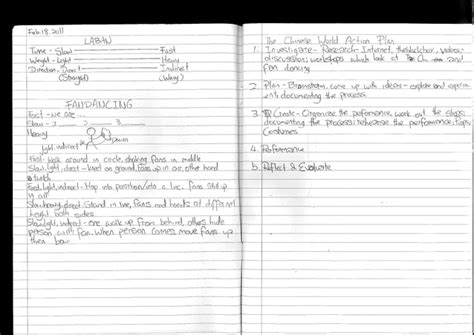 Feb. 18. 2011
LABAN
Time - Slow Fast
Weight - Light Heavy
Direction - Direct Indirect
(Straight) (Wavy)
FANDANCING
Fact - we are...
Slow - 1 2 3
Heavy
light indirect down
Fast - Walk around in circle, shaking fans in middle
Slow, light, direct - kneel on ground, fans up in air, other hand
Fast, light, indirect - Hop into position into a line, fans still up
in air
Slow, heavy, direct. Stand in line, fans and heads at different
height both sides
Slow, light, indirect - one walk up from behind, others hide
person with fan. When person comes move fans up
then bow.
The Chinese World Action Plan
1. Investigate - Research Internet, videos,
discussions, workshops which look at and
fan dancing
2. Plan - Brainstorm, come up with ideas - explore and
documenting the process
3. Create - Organise the performance work out the steps,
documenting the process, rehearse the performance,
Costumes
4. Performance
5. Reflect & Evaluate